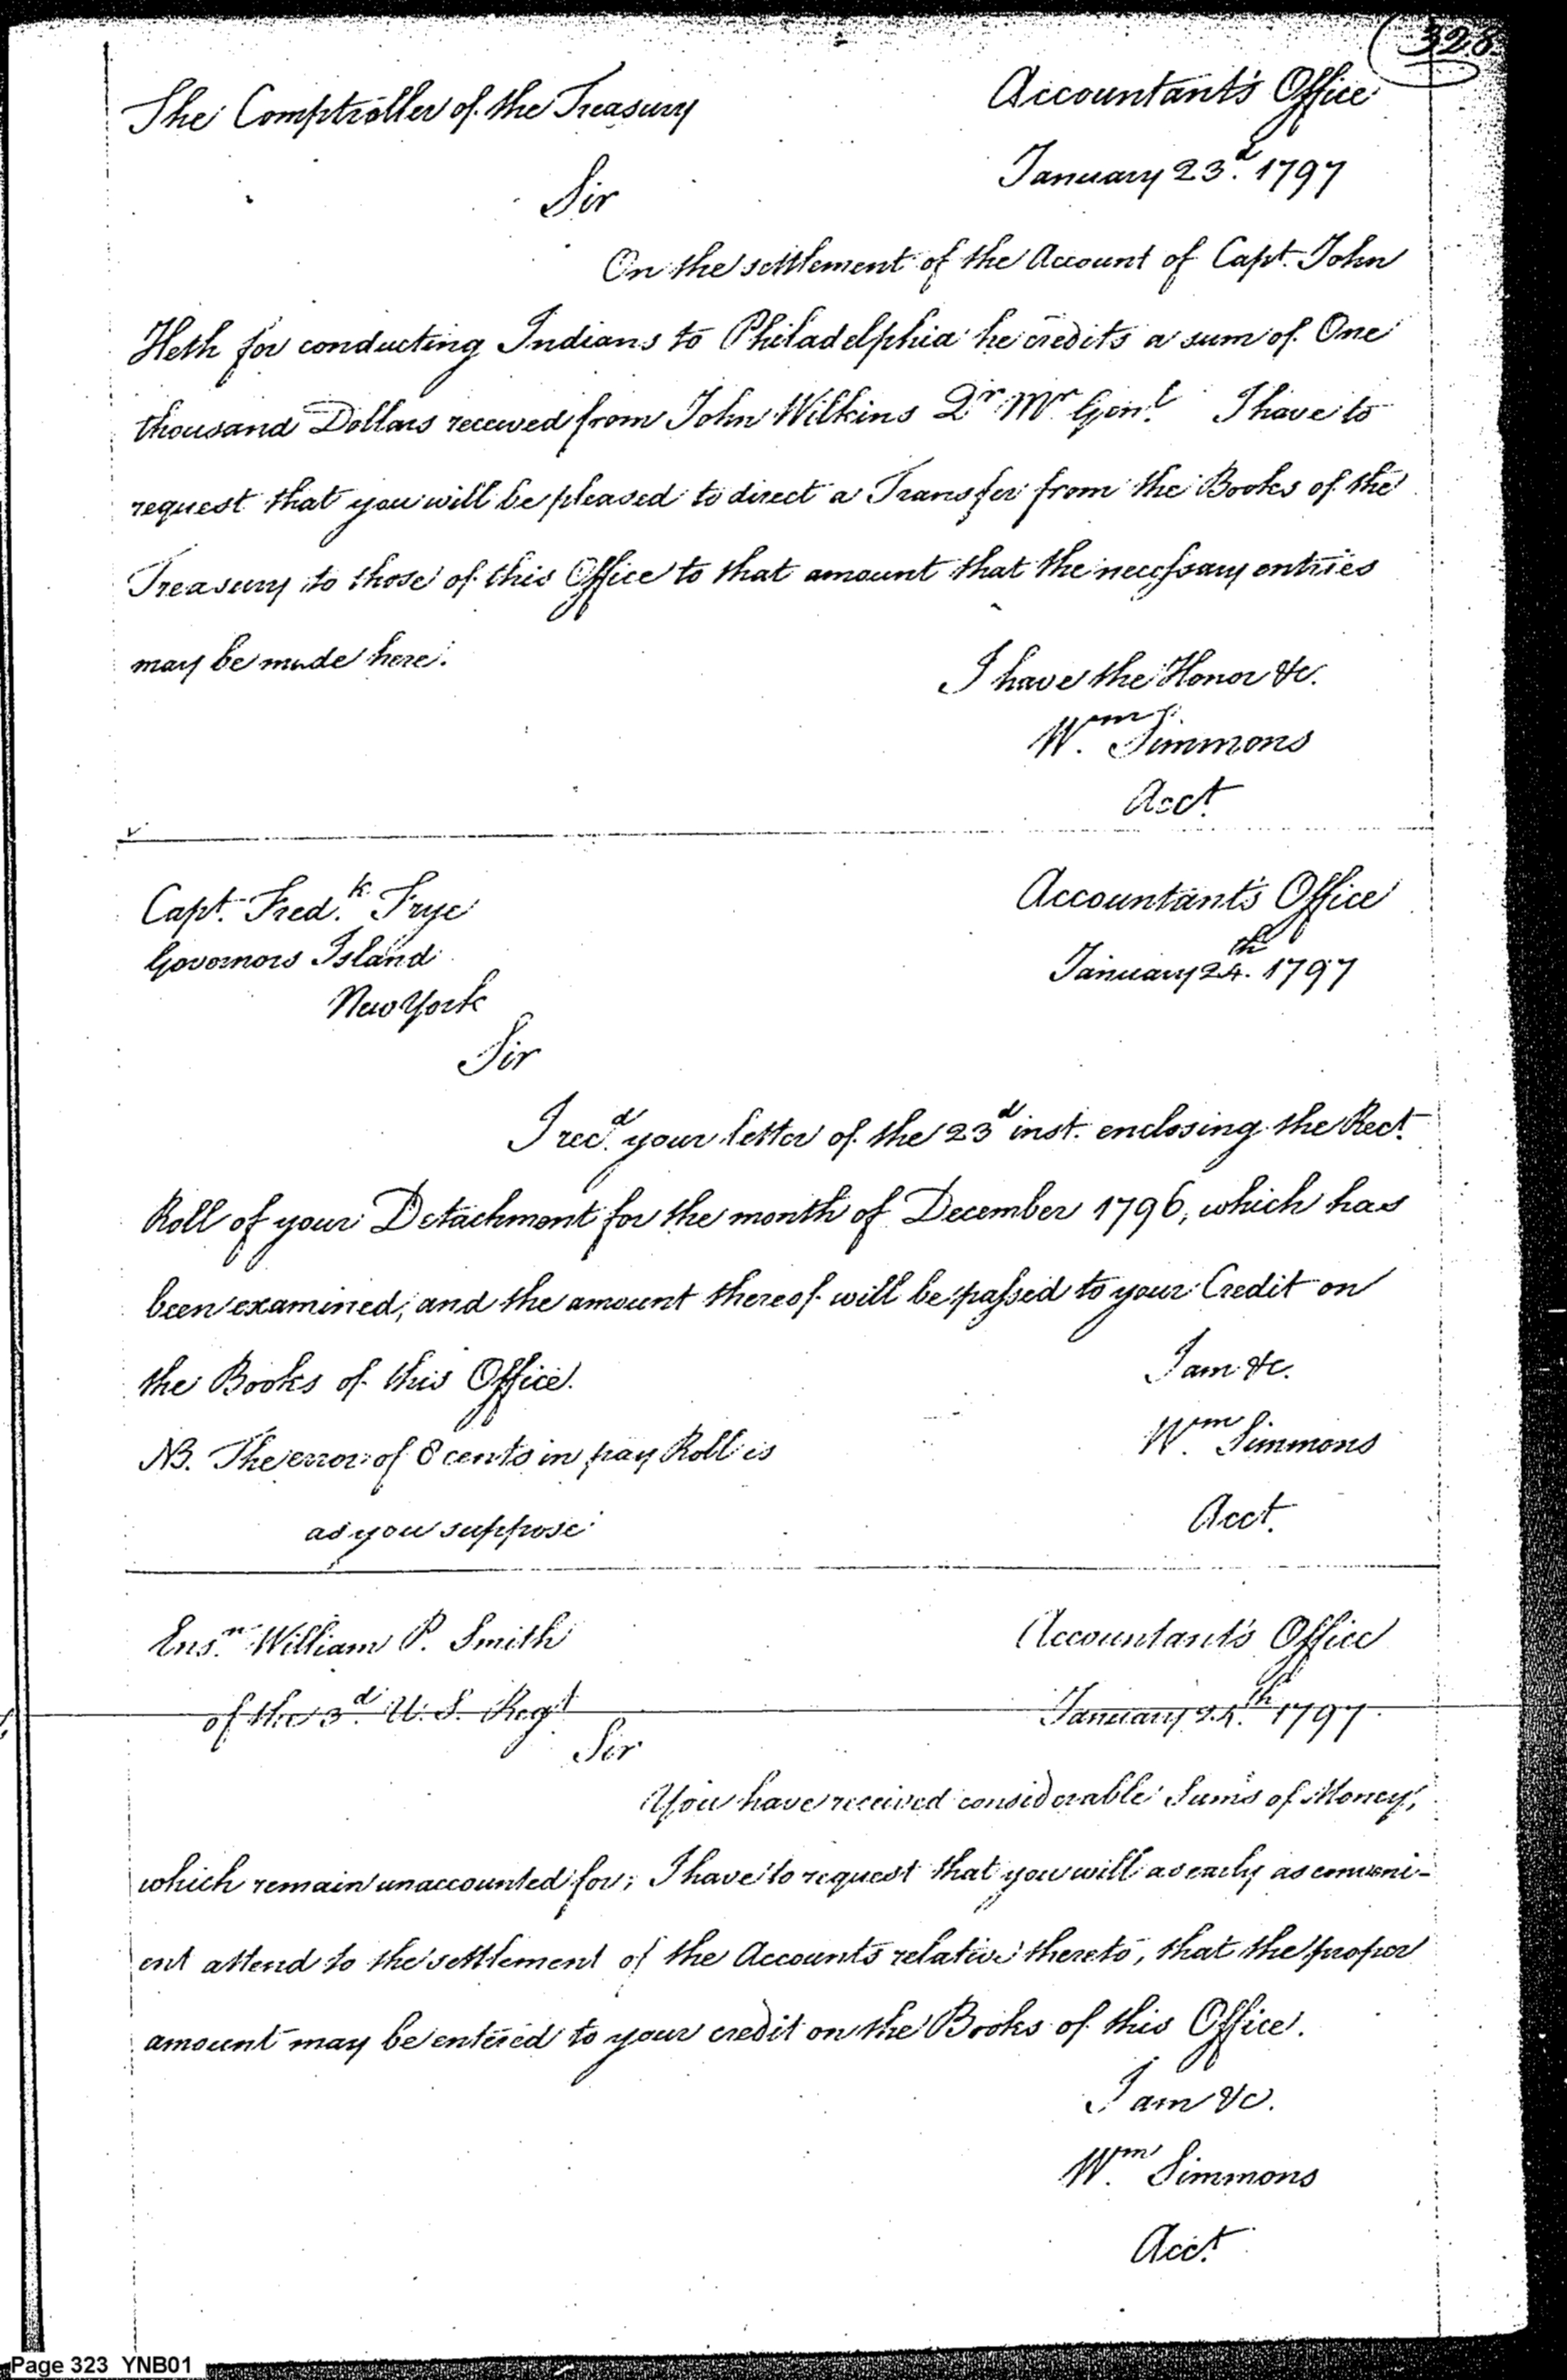 328
The Comptroller of the Treasury
Accountant's Office
January 23d. 1797
Sir
On the settlement of the Account of Capt. John
Heth for conducting Indians to Philadelphia he credits a sum of One
thousand Dollars received from John Wilkins Qr. Mr. Genl. I have to
request that you will be pleased to direct a Transfer from the Books of the
Treasury to those of this Office to that amount that the necessary entries
may be made here.
I have the Honor &c.
Wm. Simmons
Acct.
Capt. Fredk. Frye
Governors Island
New York
Accountant's Office
January 24th. 1797
Sir
I recd. your letter of the 23d inst. enclosing the Rect.
Roll of your Detachment for the month of December 1796, which has
been examined, and the amount thereof will be passed to your Credit on
the Books of this Office.
I am &c.
Wm. Simmons
Acct.
NB. The error of 8 cents in pay Roll is
as you suppose
Ensn. William P. Smith
of the 3d. U. S. Regt.
Accountant's Office
January 24th. 1797.
Sir
You have received considerable Sums of Money,
which remain unaccounted for; I have to request that you will as early as conveni-
ent attend to the settlement of the Accounts relative thereto, that the proper
amount may be entered to your credit on the Books of this Office.
I am &c.
Wm. Simmons
Acct.
Page 323 YNB01